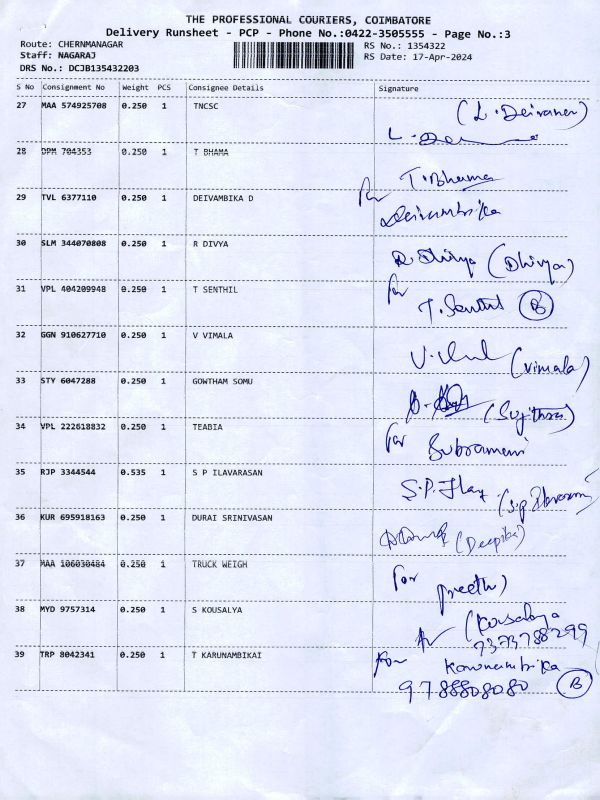 THE PROFESSIONAL COURIERS, COIMBATORE
Delivery Runsheet - PCP - Phone No.:0422-3505555 - Page No.:3
Route: CHERNMANAGAR
Staff: NAGARAJ
DRS No.: DCJB135432203
RS No.: 1354322
RS Date: 17-Apr-2024
S No Consignment No Weight PCS Consignee Details Signature
27 MAA 574925708 0.250 1 TNCSC
28 DPM 704353 0.250 1 T BHAMA T.Bhama
29 TVL 6377110 0.250 1 DEIVAMBIKA D Deivambika
30 SLM 344070808 0.250 1 R DIVYA (Dhivya)
31 VPL 404209948 0.250 1 T SENTHIL for T. Senthil B
32 GGN 910627710 0.250 1 V VIMALA (Vimala)
33 STY 6047288 0.250 1 GOWTHAM SOMU
34 VPL 222618832 0.250 1 TEABIA for Subramani
35 RJP 3344544 0.535 1 S P ILAVARASAN S.P.
36 KUR 695918163 0.250 1 DURAI SRINIVASAN (Deepika)
37 MAA 106030484 0.250 1 TRUCK WEIGH for preethi
38 MYD 9757314 0.250 1 S KOUSALYA (Kousalya
7373788299
39 TRP 8042341 0.250 1 T KARUNAMBIKAI for Karunambika
9788808080 B